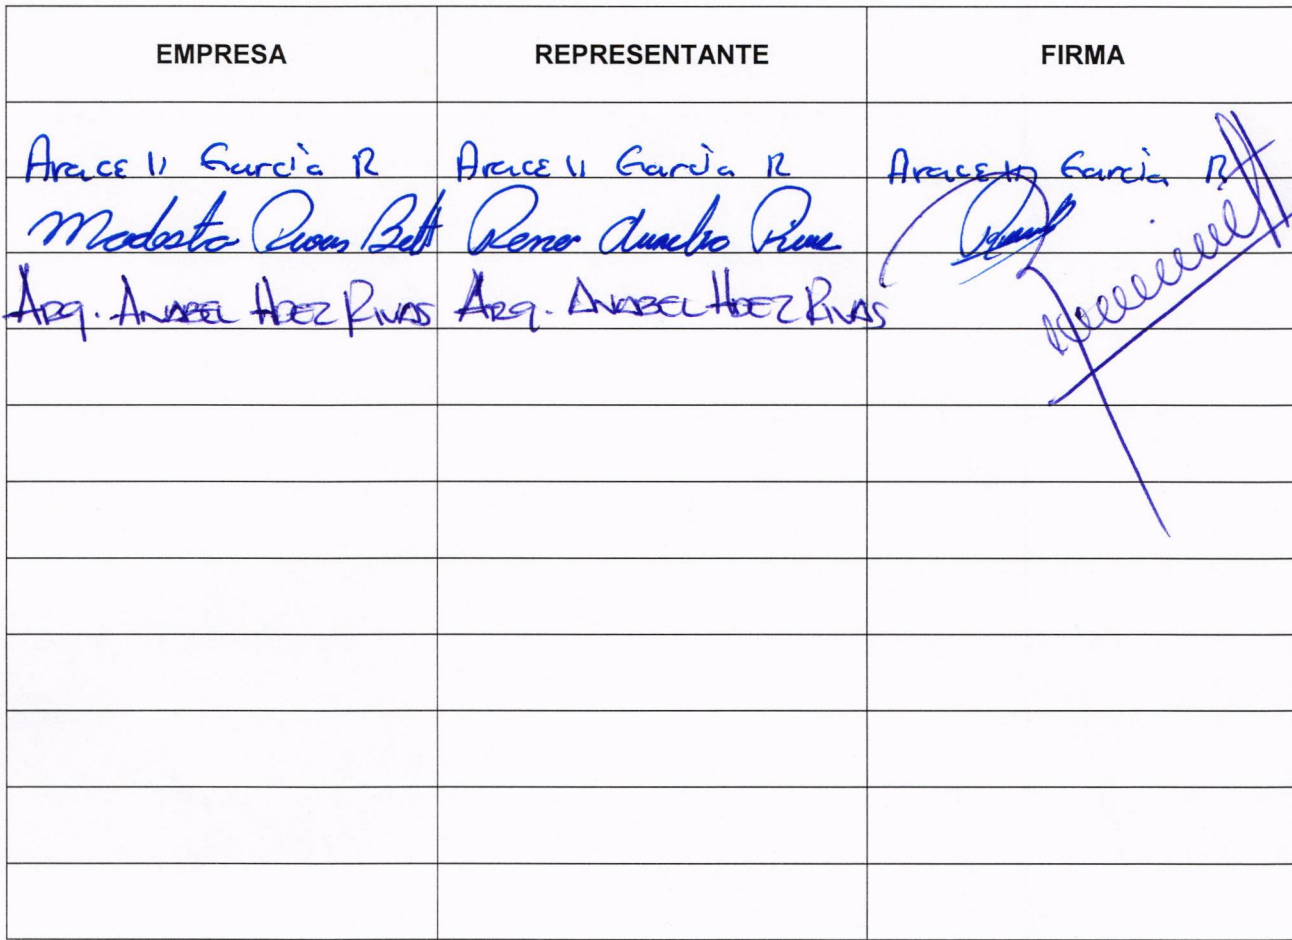 EMPRESA REPRESENTANTE FIRMA
Araceli García R Araceli García R Araceli García R
Modesto Bett Aurelio
Arq. ANABEL HDEZ RIVAS Arq. ANABEL HDEZ RIVAS